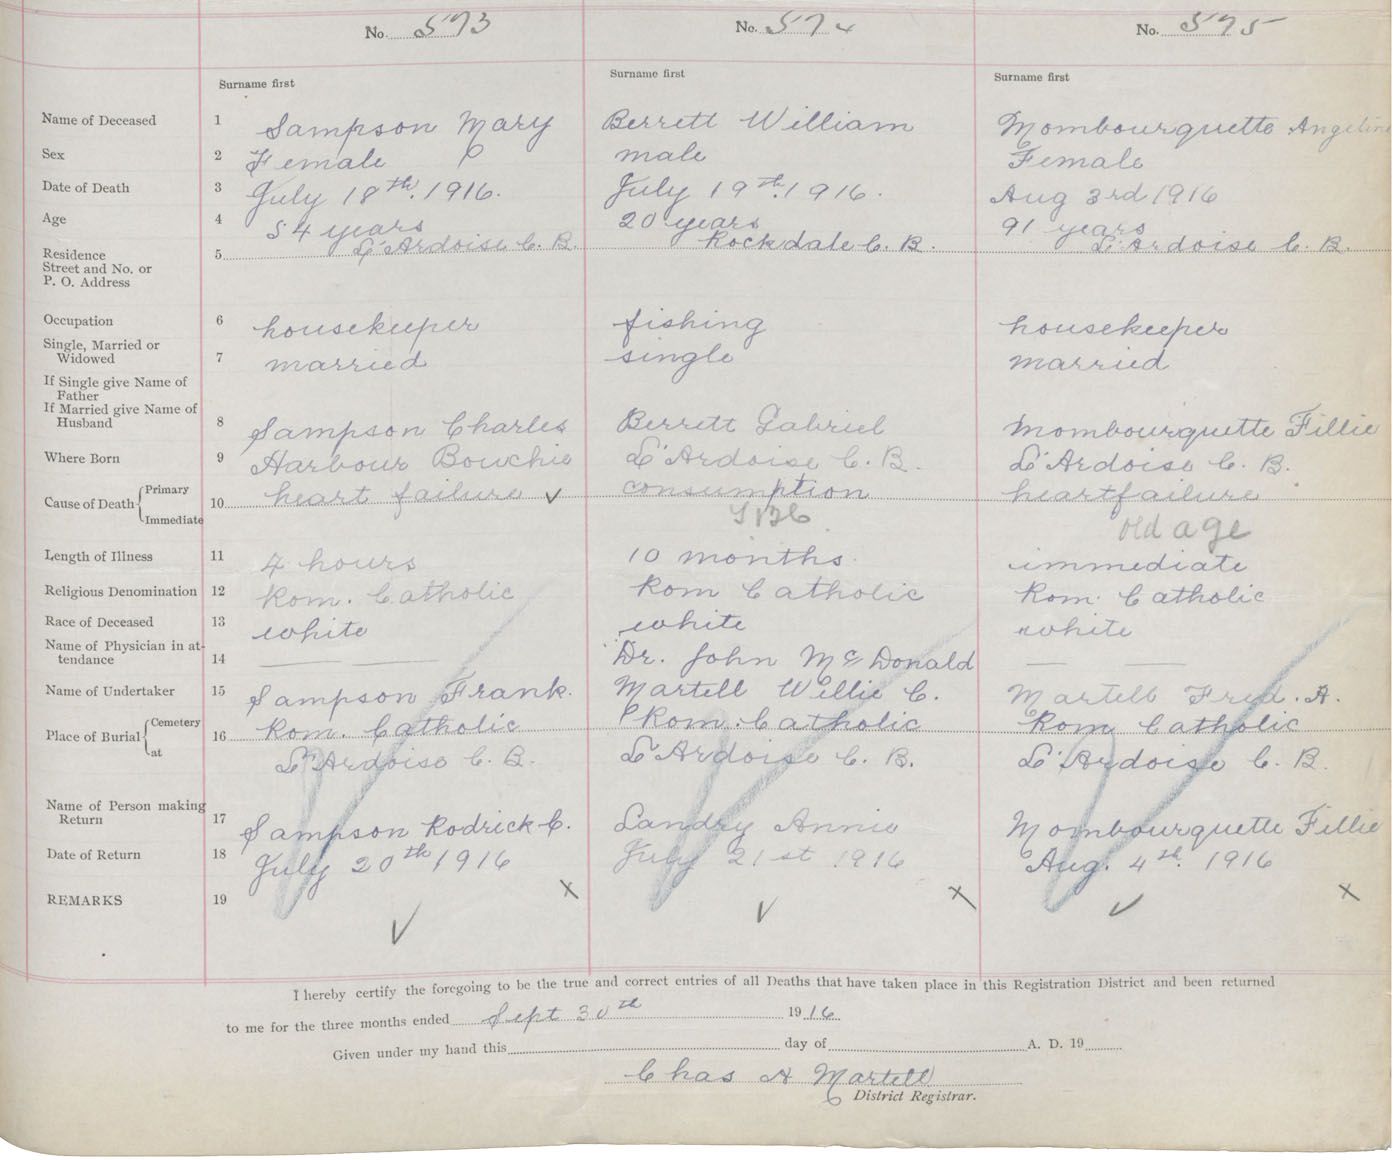 No. 573 No. 574 No. 575
Surname first Surname first Surname first
Name of Deceased 1 Sampson Mary Berrett William Mombourquette Angeline
Sex 2 Female male Female
Date of Death 3 July 18th. 1916. July 19th. 1916. Aug 3rd 1916
Age 4 54 years 20 years 91 years
Residence 5 L'Ardoise C. B. Rockdale C. B. L'Ardoise C. B.
Street and No. or
P. O. Address
Occupation 6 housekeeper fishing housekeeper
Single, Married or
Widowed 7 married single married
If Single give Name of
Father
If Married give Name of
Husband 8 Sampson Charles Berrett Gabriel Mombourquette Fillie
Where Born 9 Harbour Bouchie L'Ardoise C. B. L'Ardoise C. B.
Cause of Death { Primary 10 heart failure ✓ consumption heartfailure
Immediate TBC old age
Length of Illness 11 4 hours 10 months. immediate
Religious Denomination 12 Rom. Catholic Rom Catholic Rom. Catholic
Race of Deceased 13 white white white
Name of Physician in at-
tendance 14 — — Dr. John McDonald — —
Name of Undertaker 15 Sampson Frank. Martell Willie C. Martell Fred. A.
Place of Burial { Cemetery 16 Rom. Catholic Rom. Catholic Rom Catholic
at L'Ardoise C. B. L'Ardoise C. B. L'Ardoise C. B.
Name of Person making
Return 17 Sampson Rodrick C. Landry Annie Mombourquette Fillie
Date of Return 18 July 20th 1916 July 21st 1916 Aug. 4th. 1916
REMARKS 19 x x x
✓ ✓ ✓
I hereby certify the foregoing to be the true and correct entries of all Deaths that have taken place in this Registration District and been returned
to me for the three months ended Sept 30th 1916
Given under my hand this day of A. D. 19
Chas A Martell
District Registrar.